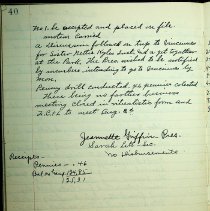 40
No 1. be accepted and placed on file
motion carried
A discussion followed on trip to Vincennes
for Sister Nettie Nolen and a get together
at the Park. The Pres wished to be notified
by members intending to go to Vincennes by
Mon.
Penny drill conducted, 46 pennies collected
There being no further business
meeting closed in ritualistic form and
to meet Aug. 8th
Jeannette Griffin Pres.
Sarah Sec.
Receipts -
No Disbursements
Pennies - .46
Bal on